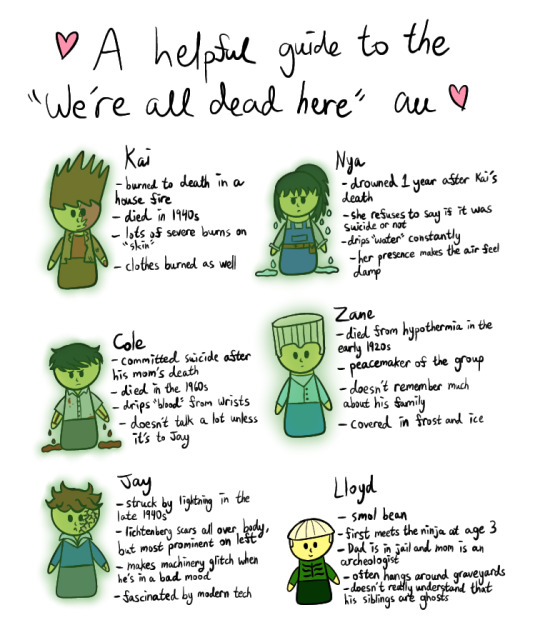 A helpful guide to the
"We're all dead here" au
Kai
- burned to death in a
house fire
- died in 1940s
- lots of severe burns on
"skin"
- clothes burned as well
Nya
- drowned 1 year after Kai's
death
- she refuses to say if it was
suicide or not
- drips "water" constantly
- her presence makes the air feel
damp
Cole
- committed suicide after
his mom's death
- died in the 1960s
- drips "blood" from wrists
- doesn't talk a lot unless
it's to Jay
Zane
- died from hypothermia in the
early 1920s
- peacemaker of the group
- doesn't remember much
about his family
- covered in frost and ice
Jay
- struck by lightning in the
late 1940s
- lichtenberg scars all over body,
but most prominent on left
- makes machinery glitch when
he's in a bad mood
- fascinated by modern tech
Lloyd
- smol bean
- first meets the ninja at age 3
- Dad is in jail and mom is an
archeologist
- often hangs around graveyards
- doesn't really understand that
his siblings are ghosts